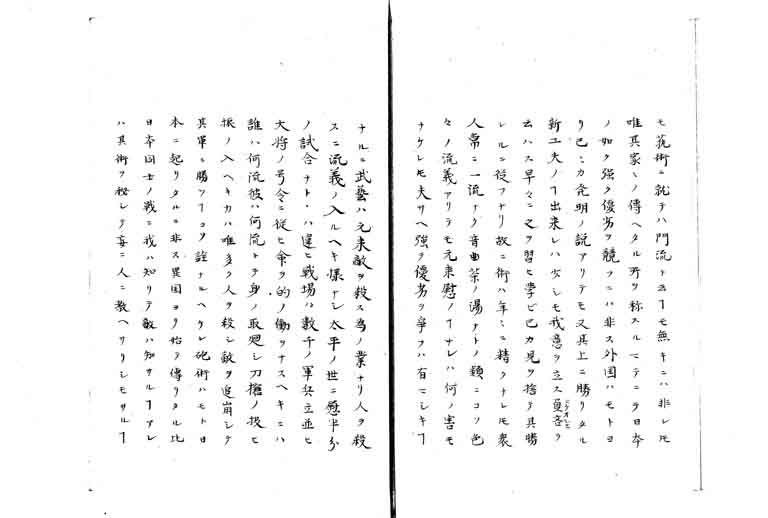 モ藝術ニ就テハ門流ト云ヿモ無キニハ非レ𪜈
唯其家々ノ傳ヘタル所ヲ称スルニテニテ日本
ノ如ク強ク優劣ヲ競フニハ非ス外国ハモトヨ
リ已ニカ発明ノ説アリテモ又其上ニ勝リタル
新工夫ノヿ出来レハ少シモ我意ヲ立ス負吝ヲ
云ハス早々ニ之ヲ習ヒ學ビ已カ見ヲ捨テ其勝
レルニ従フナリ故ニ術ハ年々ニ精クナレ𪜈衆
人常ニ一流ナク音曲茶ノ湯ナトノ類ニコソ色
々ノ流義アリテモ元来慰ノヿナレハ何ノ害モ
ナケレ𪜈夫サヘ強ク優劣ヲ争フハ有マシキヿ
ナルニ武藝ハ元来敵ヲ殺ス為ノ業ナリ人ヲ殺
スニ流義ノ入ルヘキ様ナシ太平ノ世ニ慰半分
ノ試合ナトヽハ違ヒ戦場ハ數千ノ軍兵立並ヒ
大将ノ号令ニ従ヒ命ヲ的ノ働ヲナスヘキニハ
誰ハ何流彼ハ何流トテ身ノ取廻シ刀槍ノ扱ヒ
振ノ入ヘキカハ唯多ク人ヲ殺シ敵ヲ追崩シテ
其軍ニ勝ツヿコソ詮ナルヘケレ砲術ハモト日
本ニ起リタルニ非ス異国ヨリ始テ傳リタル比
日本同士ノ戦ニ我ハ知リテ敵ハ知サルヿアレ
ハ其術ヲ秘シテ妄ニ人ニ教ヘサリシモサルヿ